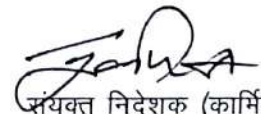 संयुक्त निदेशक (कार्मि